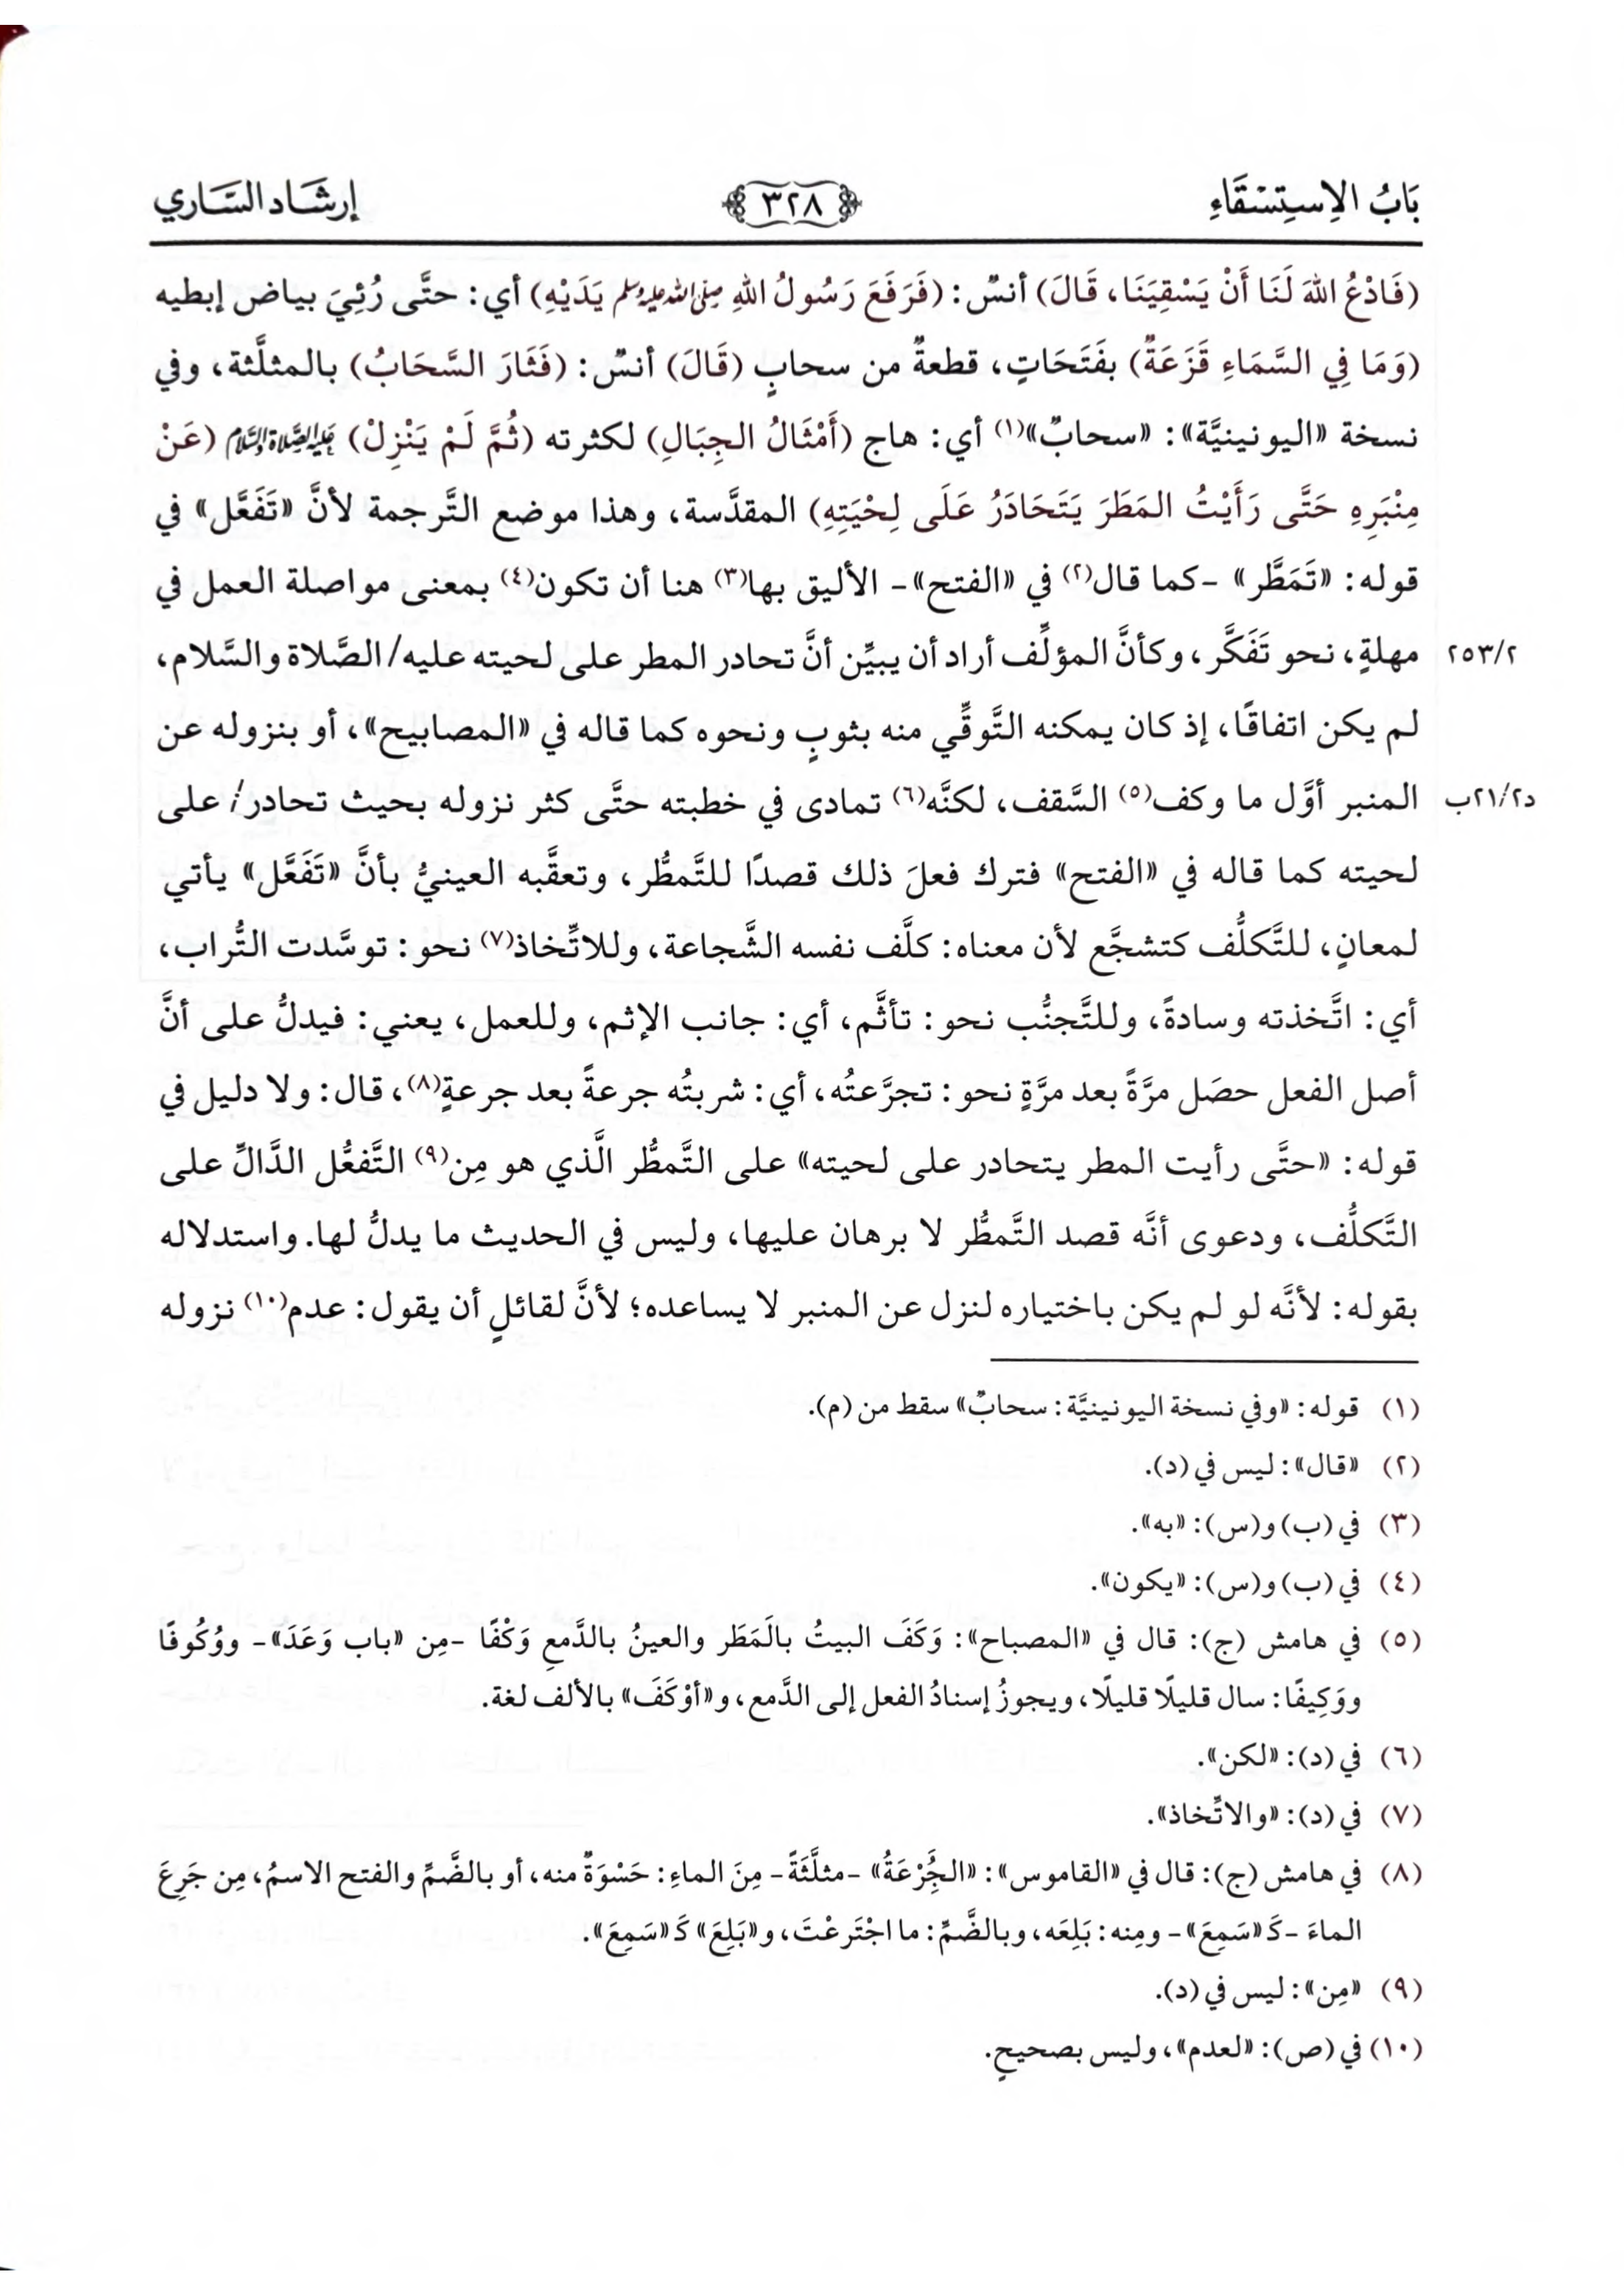 بَابُ الاِستِسْقَاءِ ٣٢٨ إرشَاد السَّاري
(فَادْعُ اللهَ لَنَا أَنْ يَسْقِيَنَا، قَالَ) أنسٌ: (فَرَفَعَ رَسُولُ اللهِ صلى الله عليه وسلم يَدَيْهِ) أي: حتَّى رُئِيَ بياض إبطيه
(وَمَا فِي السَّمَاءِ قَزَعَةٌ) بفَتَحَاتٍ، قطعةٌ من سحابٍ (قَالَ) أنسٌ: (فَثَارَ السَّحَابُ) بالمثلَّثة، وفي
نسخة «اليونينيَّة»: «سحابٌ»(١) أي: هاج (أَمْثَالُ الجِبَالِ) لكثرته (ثُمَّ لَمْ يَنْزِلْ) عليه الصلاة والسلام (عَنْ
مِنْبَرِهِ حَتَّى رَأَيْتُ المَطَرَ يَتَحَادَرُ عَلَى لِحْيَتِهِ) المقدَّسة، وهذا موضع التَّرجمة لأنَّ «تَفَعَّل» في
قوله: «تَمَطَّر» -كما قال(٢) في «الفتح»- الأليق بها(٣) هنا أن تكون(٤) بمعنى مواصلة العمل في
مهلةٍ، نحو تَفَكَّر، وكأنَّ المؤلِّف أراد أن يبيِّن أنَّ تحادر المطر على لحيته عليه/ الصَّلاة والسَّلام، ٢٥٣/٢
لم يكن اتفاقًا، إذ كان يمكنه التَّوقِّي منه بثوبٍ ونحوه كما قاله في «المصابيح»، أو بنزوله عن
المنبر أوَّل ما وكف(٥) السَّقف، لكنَّه(٦) تمادى في خطبته حتَّى كثر نزوله بحيث تحادر/ على د٢١/٢ب
لحيته كما قاله في «الفتح» فترك فعلَ ذلك قصدًا للتَّمطُّر، وتعقَّبه العينيُّ بأنَّ «تَفَعَّل» يأتي
لمعانٍ، للتَّكلُّف كتشجَّع لأن معناه: كلَّف نفسه الشَّجاعة، وللاتِّخاذ(٧) نحو: توسَّدت التُّراب،
أي: اتَّخذته وسادةً، وللتَّجنُّب نحو: تأثَّم، أي: جانب الإثم، وللعمل، يعني: فيدلُّ على أنَّ
أصل الفعل حصَل مرَّةً بعد مرَّةٍ نحو: تجرَّعتُه، أي: شربتُه جرعةً بعد جرعةٍ(٨)، قال: ولا دليل في
قوله: «حتَّى رأيت المطر يتحادر على لحيته» على التَّمطُّر الَّذي هو مِن(٩) التَّفعُّل الدَّالِّ على
التَّكلُّف، ودعوى أنَّه قصد التَّمطُّر لا برهان عليها، وليس في الحديث ما يدلُّ لها. واستدلاله
بقوله: لأنَّه لو لم يكن باختياره لنزل عن المنبر لا يساعده؛ لأنَّ لقائلٍ أن يقول: عدم(١٠) نزوله
(١) قوله: «وفي نسخة اليونينيَّة: سحابٌ» سقط من (م).
(٢) «قال»: ليس في (د).
(٣) في (ب) و(س): «به».
(٤) في (ب) و(س): «يكون».
(٥) في هامش (ج): قال في «المصباح»: وَكَفَ البيتُ بالَمَطَر والعينُ بالدَّمعِ وَكْفًا -مِن «باب وَعَدَ»- ووُكُوفًا
ووَكِيفًا: سال قليلًا قليلًا، ويجوزُ إسنادُ الفعل إلى الدَّمع، و«أوْكَفَ» بالألف لغة.
(٦) في (د): «لكن».
(٧) في (د): «والاتِّخاذ».
(٨) في هامش (ج): قال في «القاموس»: «الجَُِرْعَةُ» -مثلَّثَةً- مِنَ الماءِ: حَسْوَةٌ منه، أو بالضَّمِّ والفتح الاسمُ، مِن جَرِعَ
الماءَ -كَـ«سَمِعَ»- ومِنه: بَلِعَه، وبالضَّمِّ: ما اجْتَرعْتَ، و«بَلِعَ» كَـ«سَمِعَ».
(٩) «مِن»: ليس في (د).
(١٠) في (ص): «لعدم»، وليس بصحيحٍ.